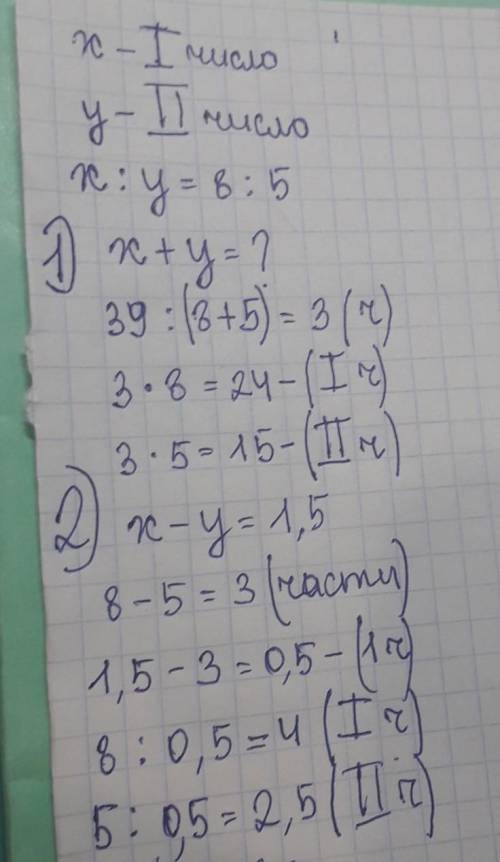 x - I число
y - II число
x : y = 8 : 5
1) x + y = ?
39 : (8+5) = 3 (ч)
3 · 8 = 24 - (I ч)
3 · 5 = 15 - (II ч)
2) x - y = 1,5
8 - 5 = 3 (части)
1,5 - 3 = 0,5 - (1ч)
8 : 0,5 = 4 (I ч)
5 : 0,5 = 2,5 (II ч)